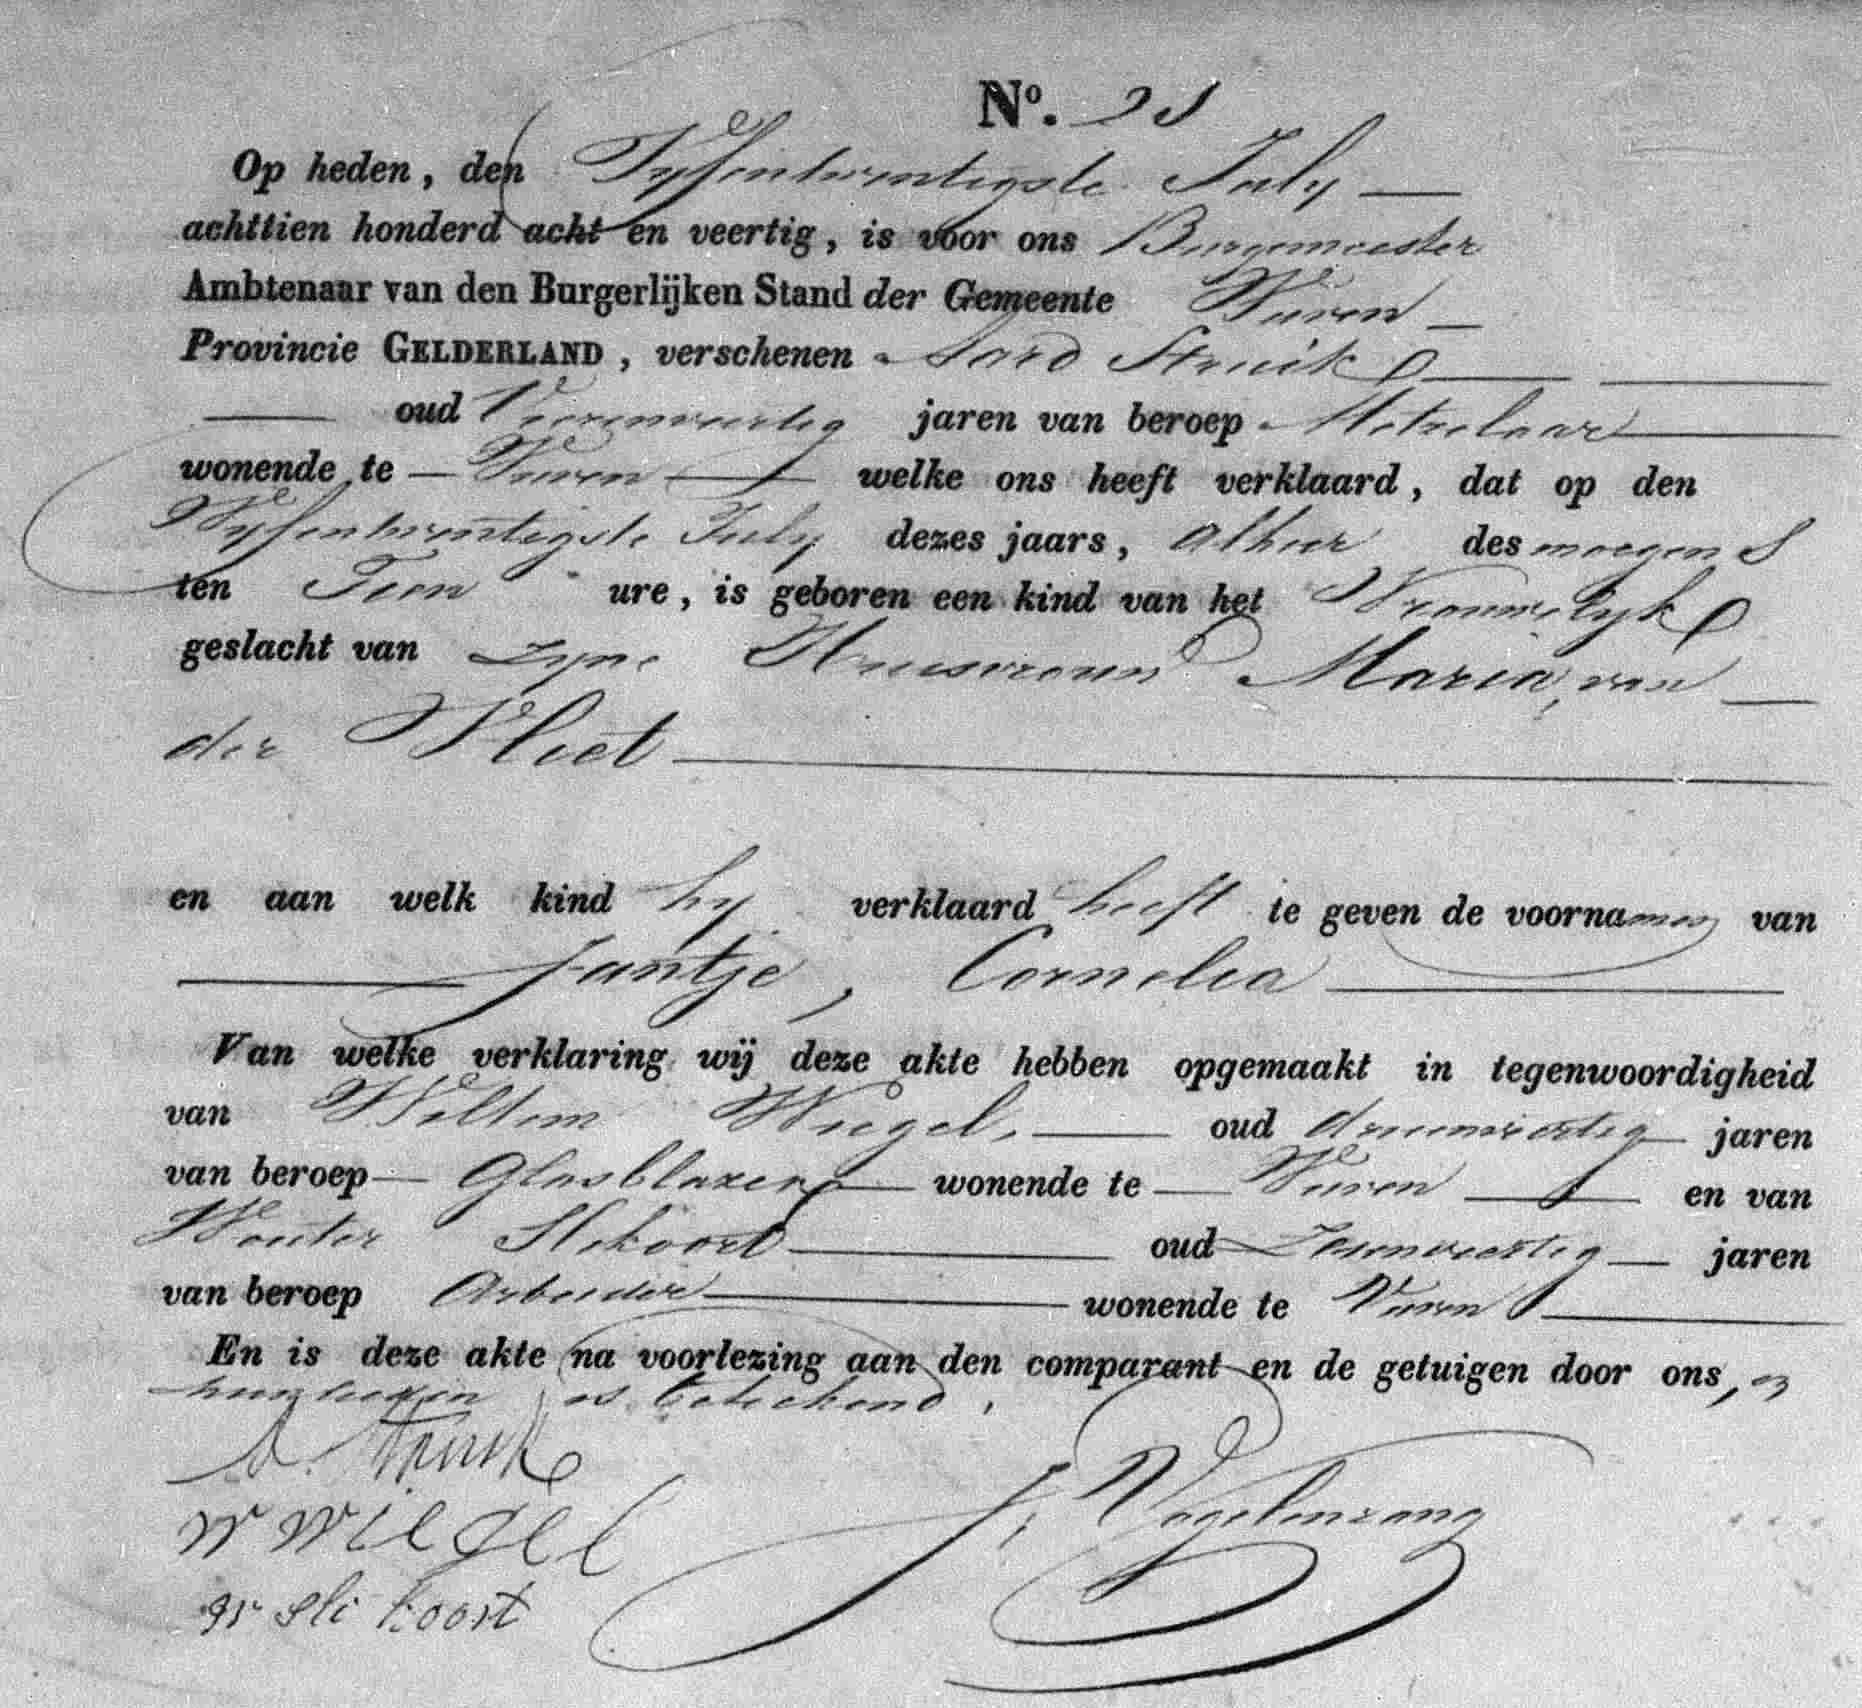 No. 21
Op heden, den Vyfentwintigste July
achttien honderd acht en veertig, is voor ons Burgemeester
Ambtenaar van den Burgerlijken Stand der Gemeente Vuren
Provincie GELDERLAND, verschenen Aard Struik
oud Vierenveertig jaren van beroep Metzelaar
wonende te Vuren welke ons heeft verklaard, dat op den
Vyfentwintigste July dezes jaars, alhier des morgens
ten Tien ure, is geboren een kind van het Vrouwelyk
geslacht van Zyne Huisvrouw Maria, van
der Vliet
en aan welk kind hy verklaard heeft te geven de voornamen van
Jantje, Cornelia
Van welke verklaring wij deze akte hebben opgemaakt in tegenwoordigheid
van Willem Wiegel, oud drieenveertig jaren
van beroep Glasblazer wonende te Vuren en van
Wouter Slekoort oud jaren
van beroep Arbeider wonende te Vuren
En is deze akte na voorlezing aan den comparant en de getuigen door ons, en
hunlieden is Geteekend.
A. Struik
W WIEGEL
J. Vogelenzang
W Sle koort